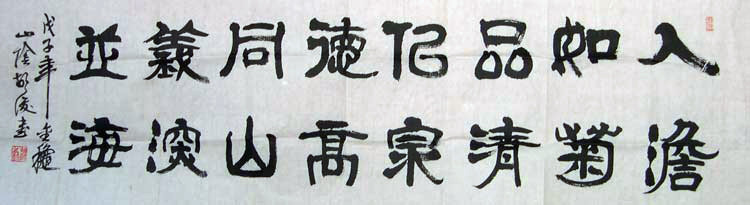 人澹
如菊
品清
似泉
德高
同山
義深
並海
戊子年金穐
山陰胡俊書